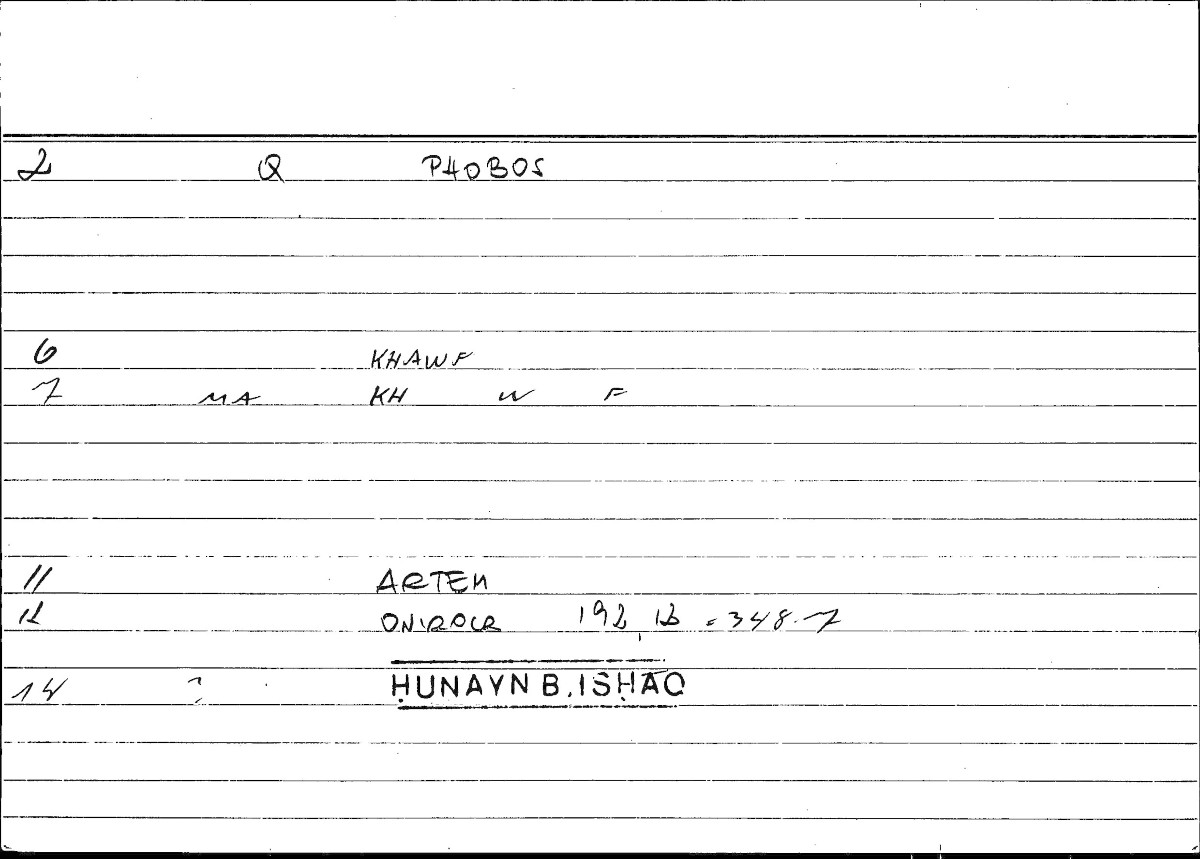 2 Q PHOBOS
6 KHAWF
7 MA KH W F
11 ARTEM
12 ONIROCR 192, 12 = 348.7
14 ? ḤUNAYN B. ISḤĀQ